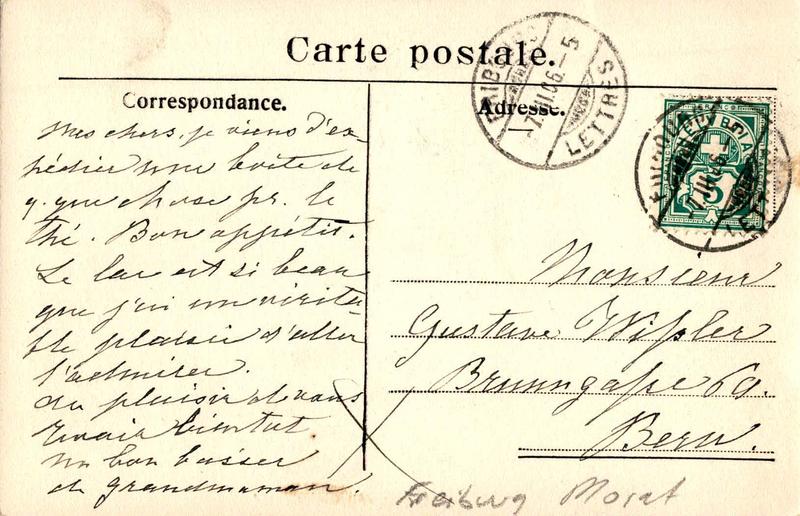 Carte postale.
Correspondance.
Adresse.
LETTRES
7.III.06.-5
HELVETIA
FRANCO
5
Mes chers, je viens d'ex-
pédier une boîte de
q. que chose pr. le
thé. Bon appétit.
Le lac est si beau
que j'ai un vérita-
ble plaisir d'aller
l'admirer.
Au plaisir de vous
revoir bientôt
un bon baiser
de grandmaman.
Monsieur
Gustave Wißler
Brunngaße 60.
Bern.
Freiburg Morat